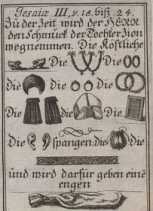 Jesaiæ III, v. 18. biß 24.
Zu der Zeit wird der HERR
den Schmuck der Tochter Zion
wegnemmen. Die Köstliche
Die Die
Die Die Die
Die Die
Die spangen. die Die
und wird darfür geben eine
engen